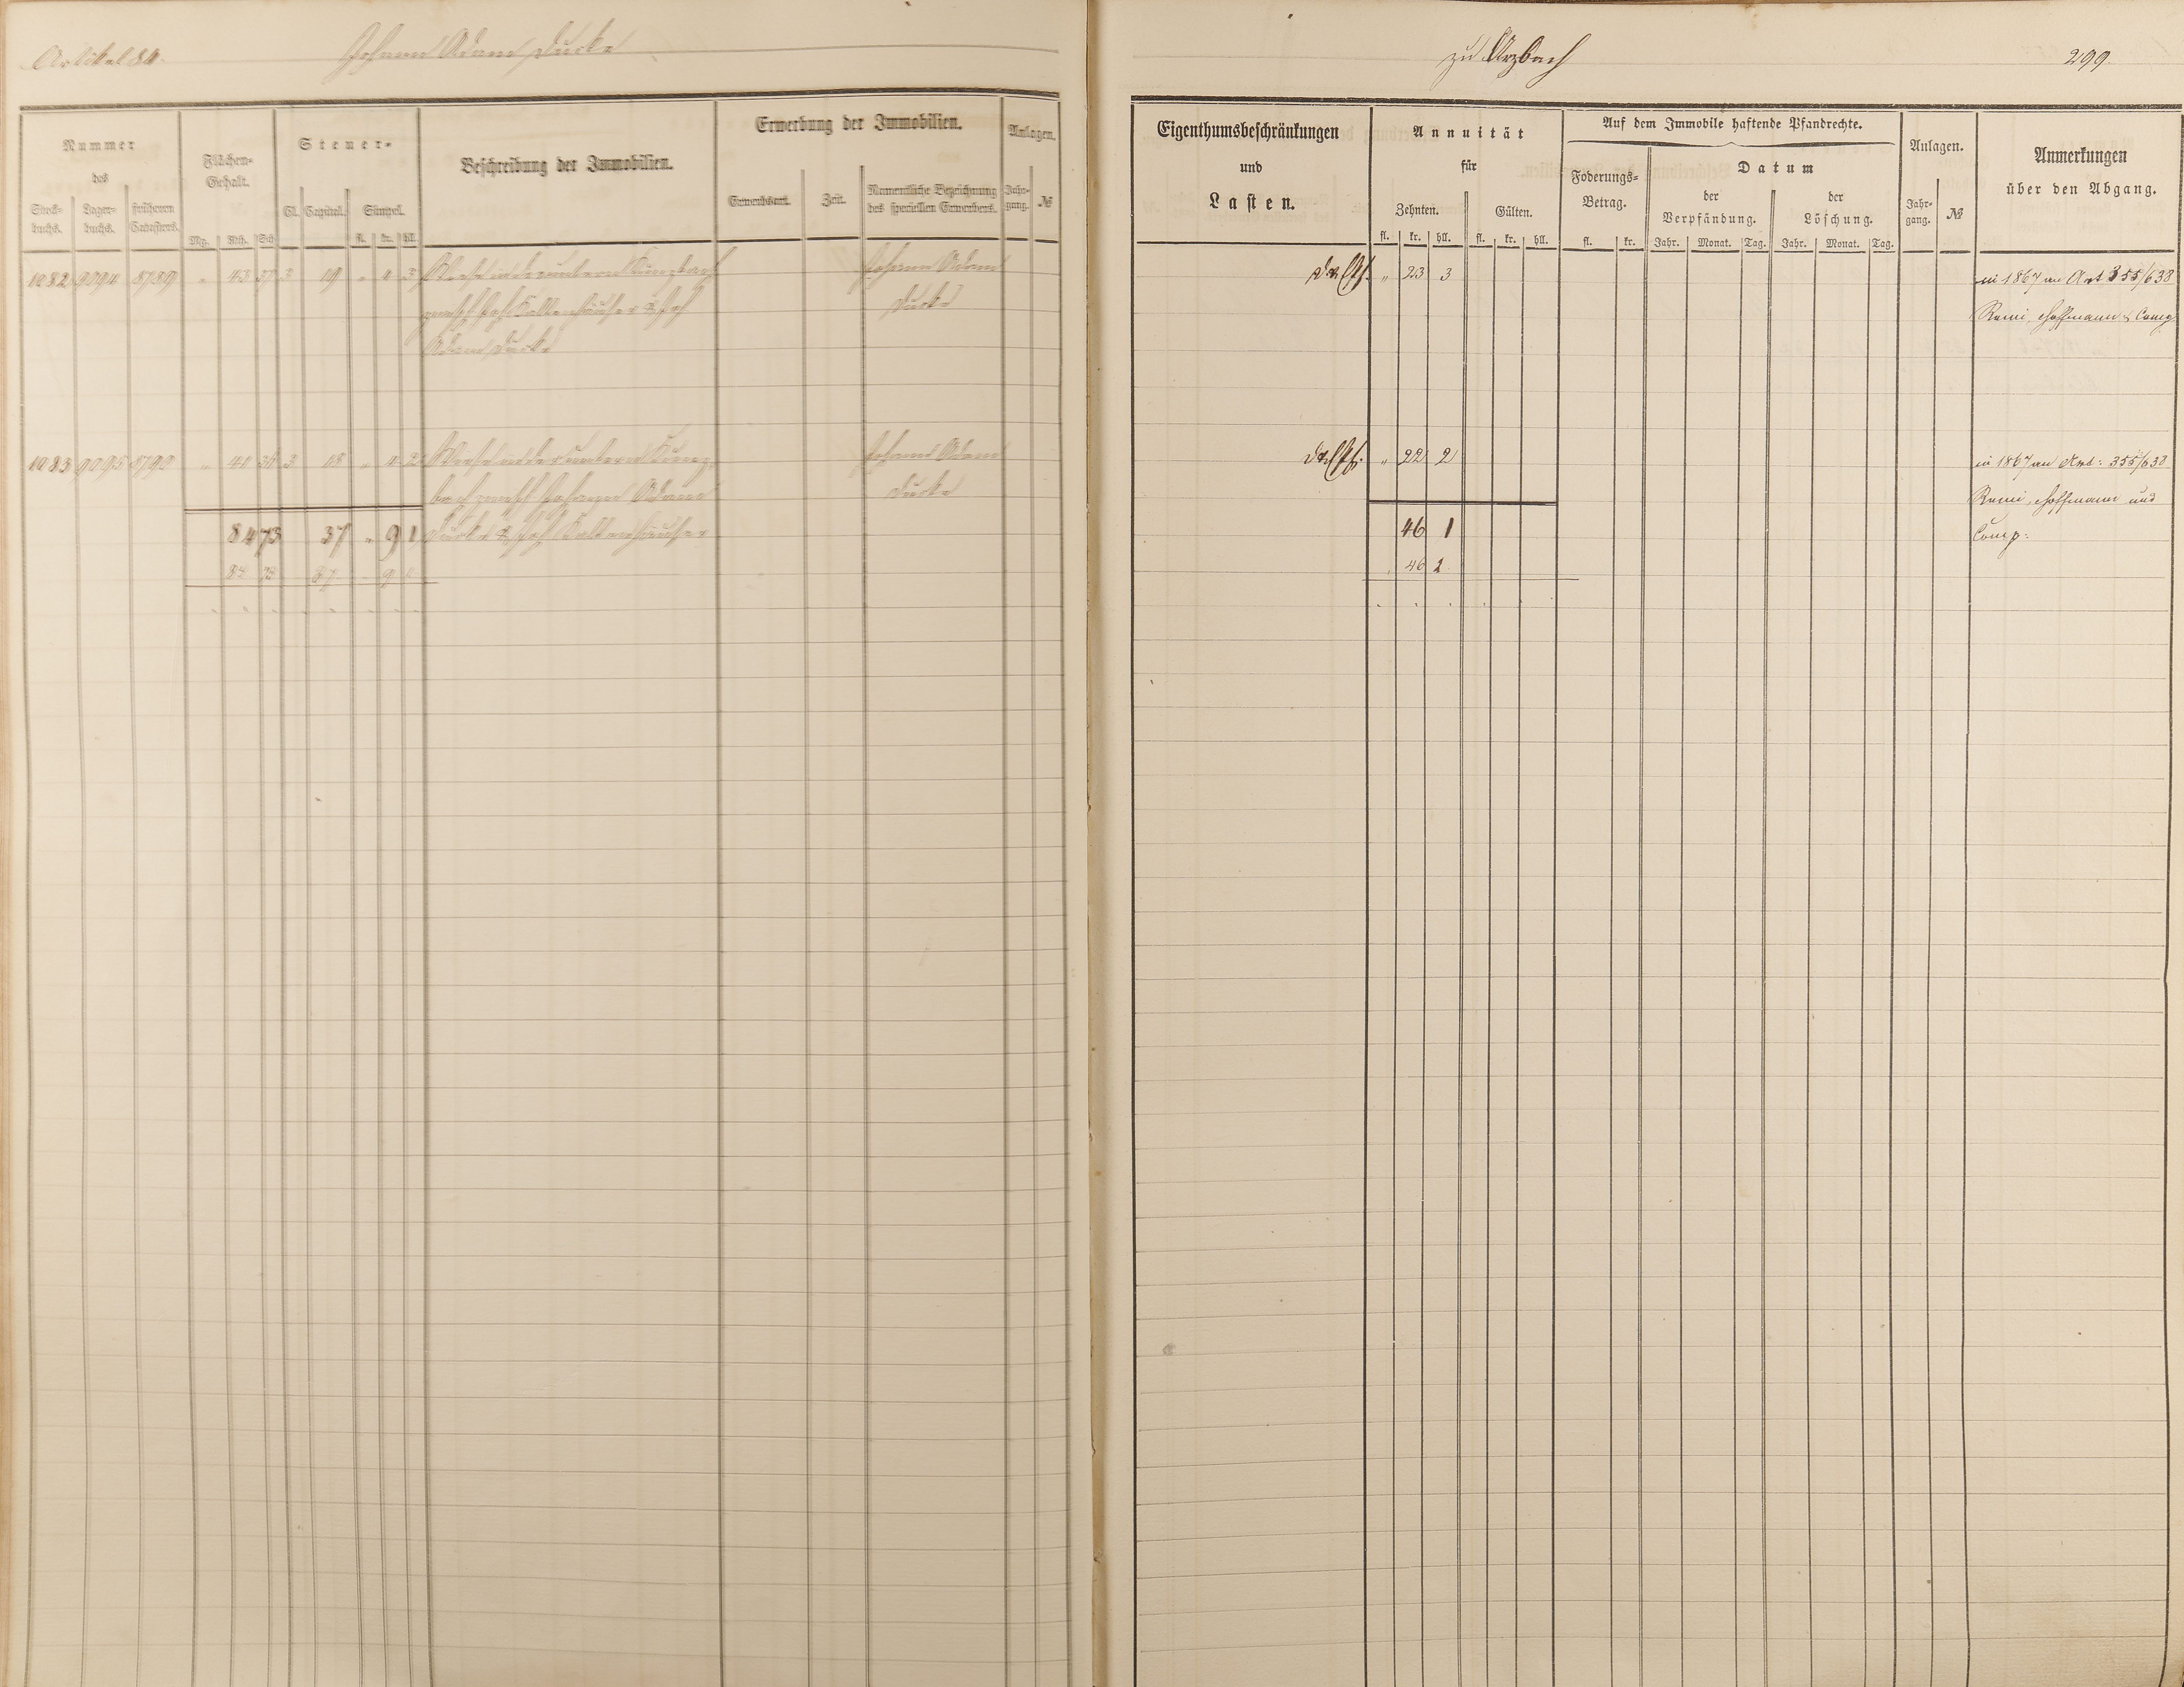 Artikel 84.
Johann Adam Ducke
zu Arzbach
299
Nummer
des
Stock-
buchs.
Lager-
buchs.
früheren
Catasters.
Flächen-
Gehalt.
Mg. Rth. Sch
Steuer-
Cl. Capital. Simpel.
fl. kr. hll.
Beschreibung der Immobilien.
Erwerbung der Immobilien.
Erwerbsart. Zeit.
Namentliche Bezeichnung
des speciellen Erwerbers.
Anlagen.
Jahr-
gang. №
Eigenthumsbeschränkungen
und
Lasten.
Annuität
für
Zehnten. Gülten.
fl. kr. hll. fl. kr. hll.
Auf dem Immobile haftende Pfandrechte.
Foderungs-
Betrag.
fl. kr.
Datum
der
Verpfändung.
der
Löschung.
Jahr. Monat. Tag. Jahr. Monat. Tag.
Anlagen.
Jahr-
gang. №
Anmerkungen
über den Abgang.
1082 9094 8789 " 43 37 3 19 " 4 3 Wiese in der untern Kunzbach
Johann Adam
" 23 3
in 1867 an Art 355/638
Ducke
Remi, Hoffmann & Comp
Adam Ducke
1083 9095 8790 " 40 36 3 18 " 4 2 Wiese in der untern Kunz-
Johann Adam
" 22 2
in 1867 an Art: 355/638
bach Johann Adam
Ducke
Remi, Hoffmann und
84 73 37 " 9 1
46 1
Comp:
46 2